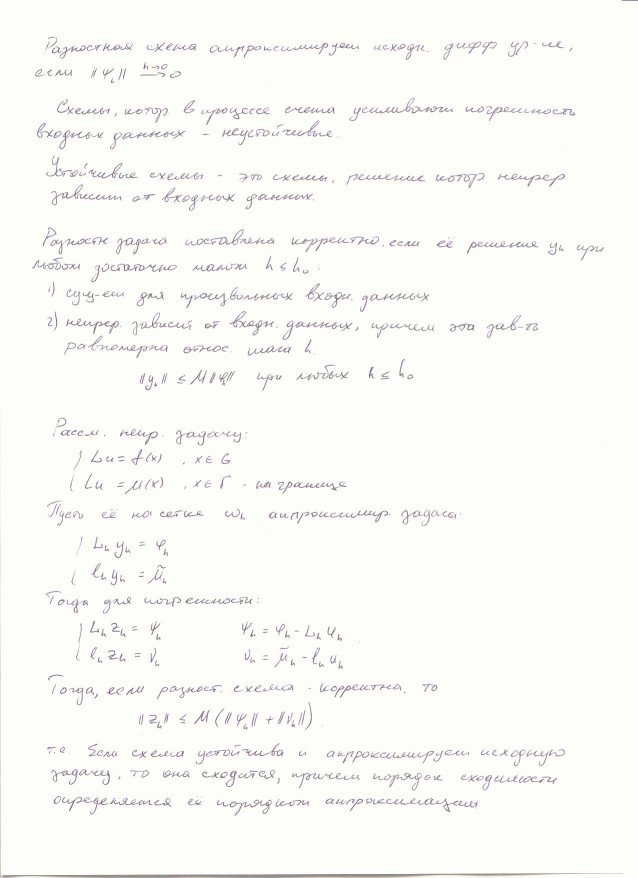 Разностная схема аппроксимирует исходн. дифф ур-ие,
если ‖Ψₕ‖ →(h→0) 0
Схемы, котор. в процессе счета усиливают погрешность
входных данных – неустойчивые.
Устойчивые схемы – это схемы, решение котор непрер
зависит от входных данных.
Разностн задача поставлена корректно, если её решение yₕ при
любом достаточно малом h ≤ h₀ :
1) сущ-ет для произвольных входн. данных
2) непрер. зависит от входн. данных, причем эта зав-ть
равномерна относ. шага h.
‖yₕ‖ ≤ M‖φₕ‖ при любых h ≤ h₀
Рассм. непр. задачу:
{ Lu = f(x) , x ∈ G
{ Lu = μ(x) , x ∈ Γ - на границе
Пусть её на сетке ωₕ аппроксимир. задача:
{ Lₕ yₕ = φₕ
{ lₕ yₕ = μ̃ₕ
Тогда для погрешности:
{ Lₕ zₕ = Ψₕ Ψₕ = φₕ - Lₕ uₕ
{ lₕ zₕ = νₕ νₕ = μ̃ₕ - lₕ uₕ
Тогда, если разност. схема - корректна, то
‖zₕ‖ ≤ M (‖Ψₕ‖ + ‖νₕ‖)
т.е Если схема устойчива и аппроксимирует исходную
задачу, то она сходится, причем порядок сходимости
определяется её порядком аппроксимации